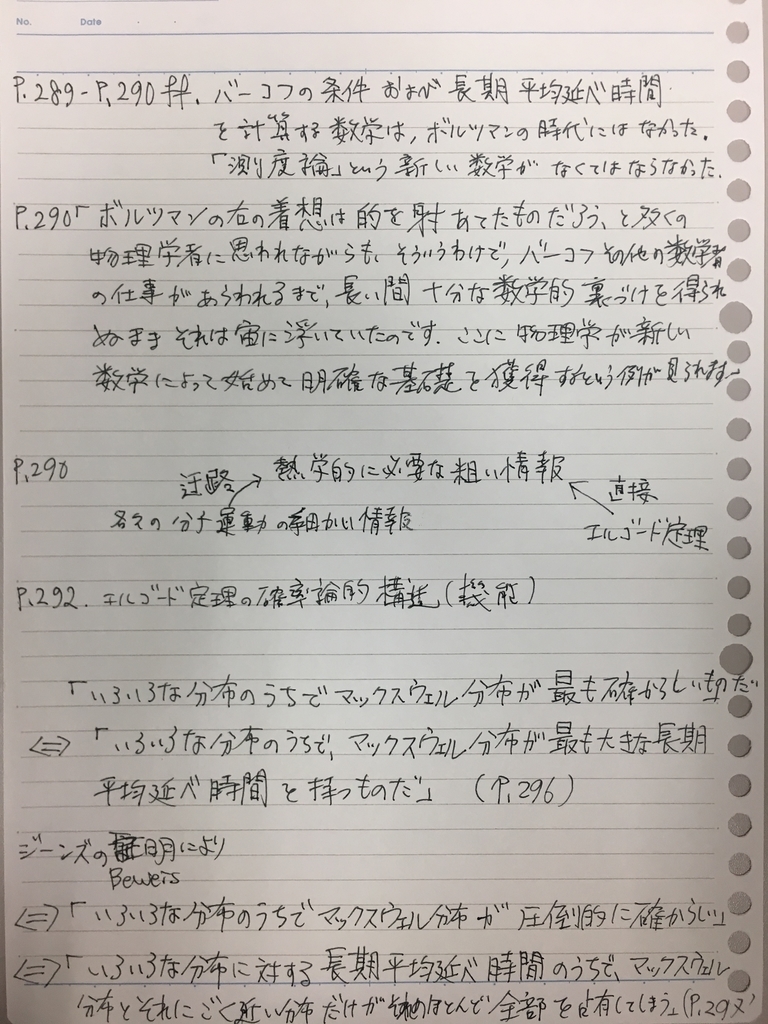 No. Date
P.289-P.290 ff. バーコフの条件 および 長期 平均延べ時間
を計算する数学は, ボルツマンの時代にはなかった.
「測度論」という新しい数学がなくてはならなかった.
P.290「ボルツマンの右の着想は的を射あてたものだろう、と多くの
物理学者に思われながらも、そういうわけで, バーコフその他の数学者
の仕事があらわれるまで, 長い間 十分な数学的裏づけを得られ
ぬままそれは宙に浮いていたのです. ここに 物理学が新しい
数学によって始めて明確な基礎を獲得するという例が見られます」
P.290
迂路 熱学的に必要な粗い情報 直接
各々の分子運動の細かい情報 エルゴード定理
P.292. エルゴード定理の確率論的構造(機能)
「いろいろな分布のうちでマックスウェル分布が最も確からしいものだ」
⇔ 「いろいろな分布のうちで, マックスウェル分布が最も大きな長期
平均延べ時間を持つものだ」 (P.296)
ジーンズの証明により
Beweis
⇔「いろいろな分布のうちでマックスウェル分布が 圧倒的に確からしい」
⇔「いろいろな分布に対する長期平均延べ時間のうちで, マックスウェル
分布とそれにごく近い分布だけがそのほとんど全部を占有してしまう」